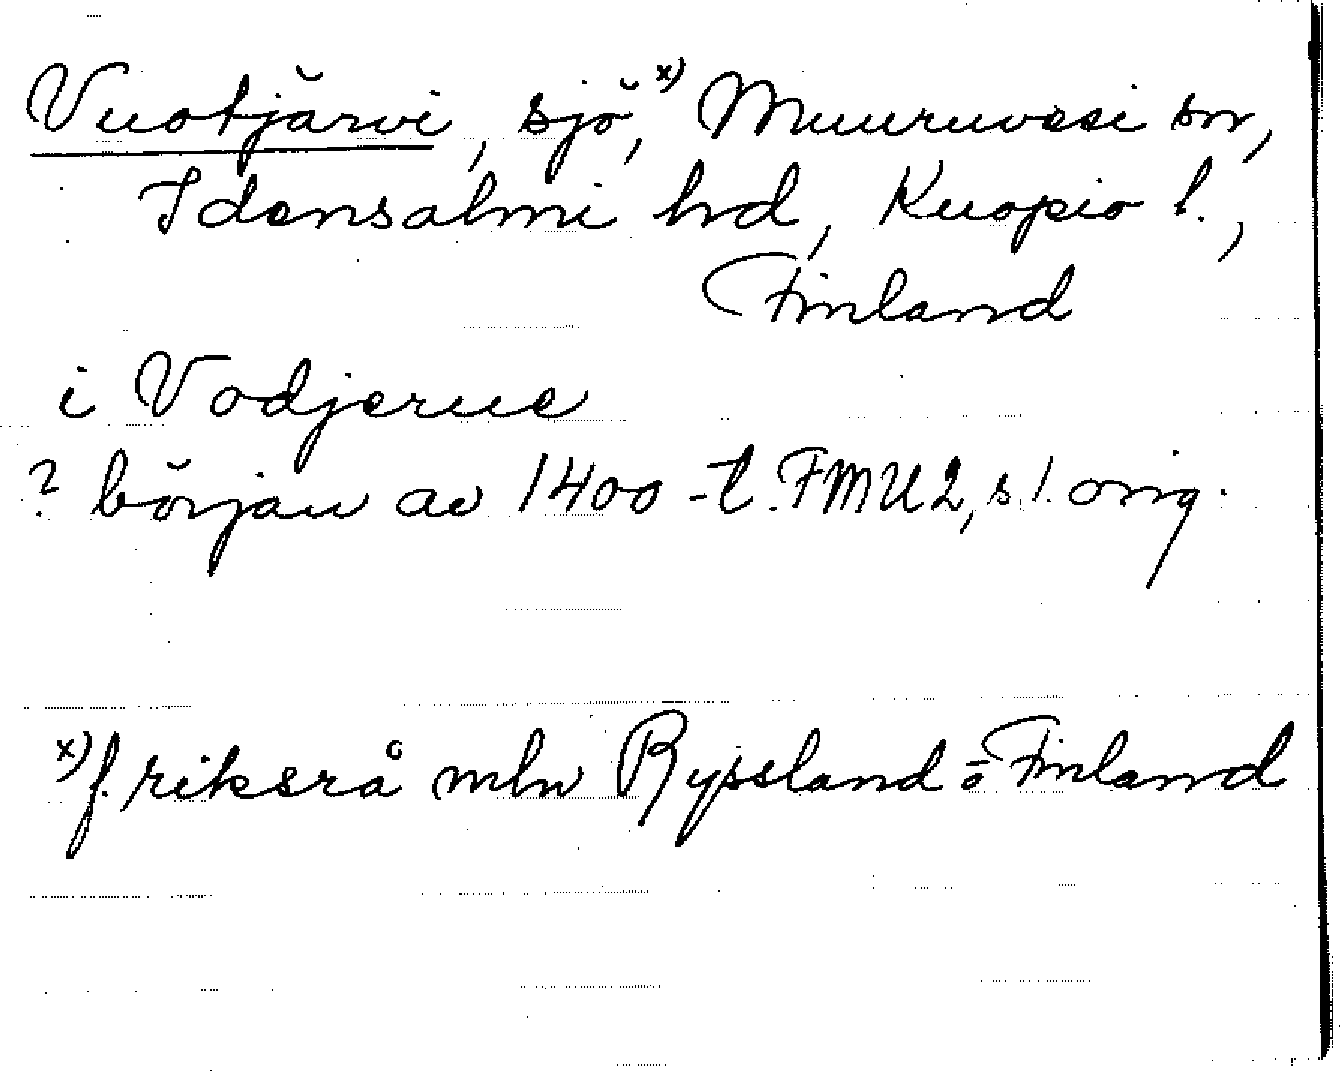 Vuotjärvi, sjö,x) Muuruvesi sn,
Idensalmi hd, Kuopio l.,
Finland
i Vodjerue
? början av 1400-t. FMU2, s 1. orig.
x) f. riksrå mln Ryssland o Finland